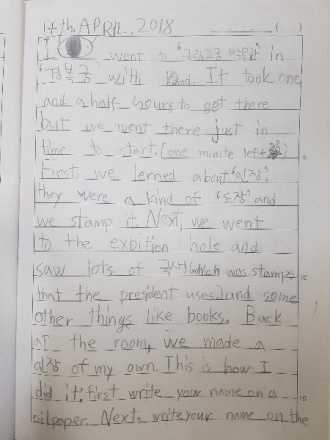 14th, APRIL, 2018
I went to "국립고궁 박물관" in
"경복궁" with Dad. It took one
and a half-hours to get there
but we went there just in
time to start. (one minite left
First, we lerned about "
they were a kind of "도장" and
we stamp it. Next, we went
to the expition hole and
saw lots of 국새(which was stamps
that the president uses.) and some
other things like books. Back
at the room, we made a
of my own. This is how I
did it: first write your name on a
oilpaper. Next, write your name on the